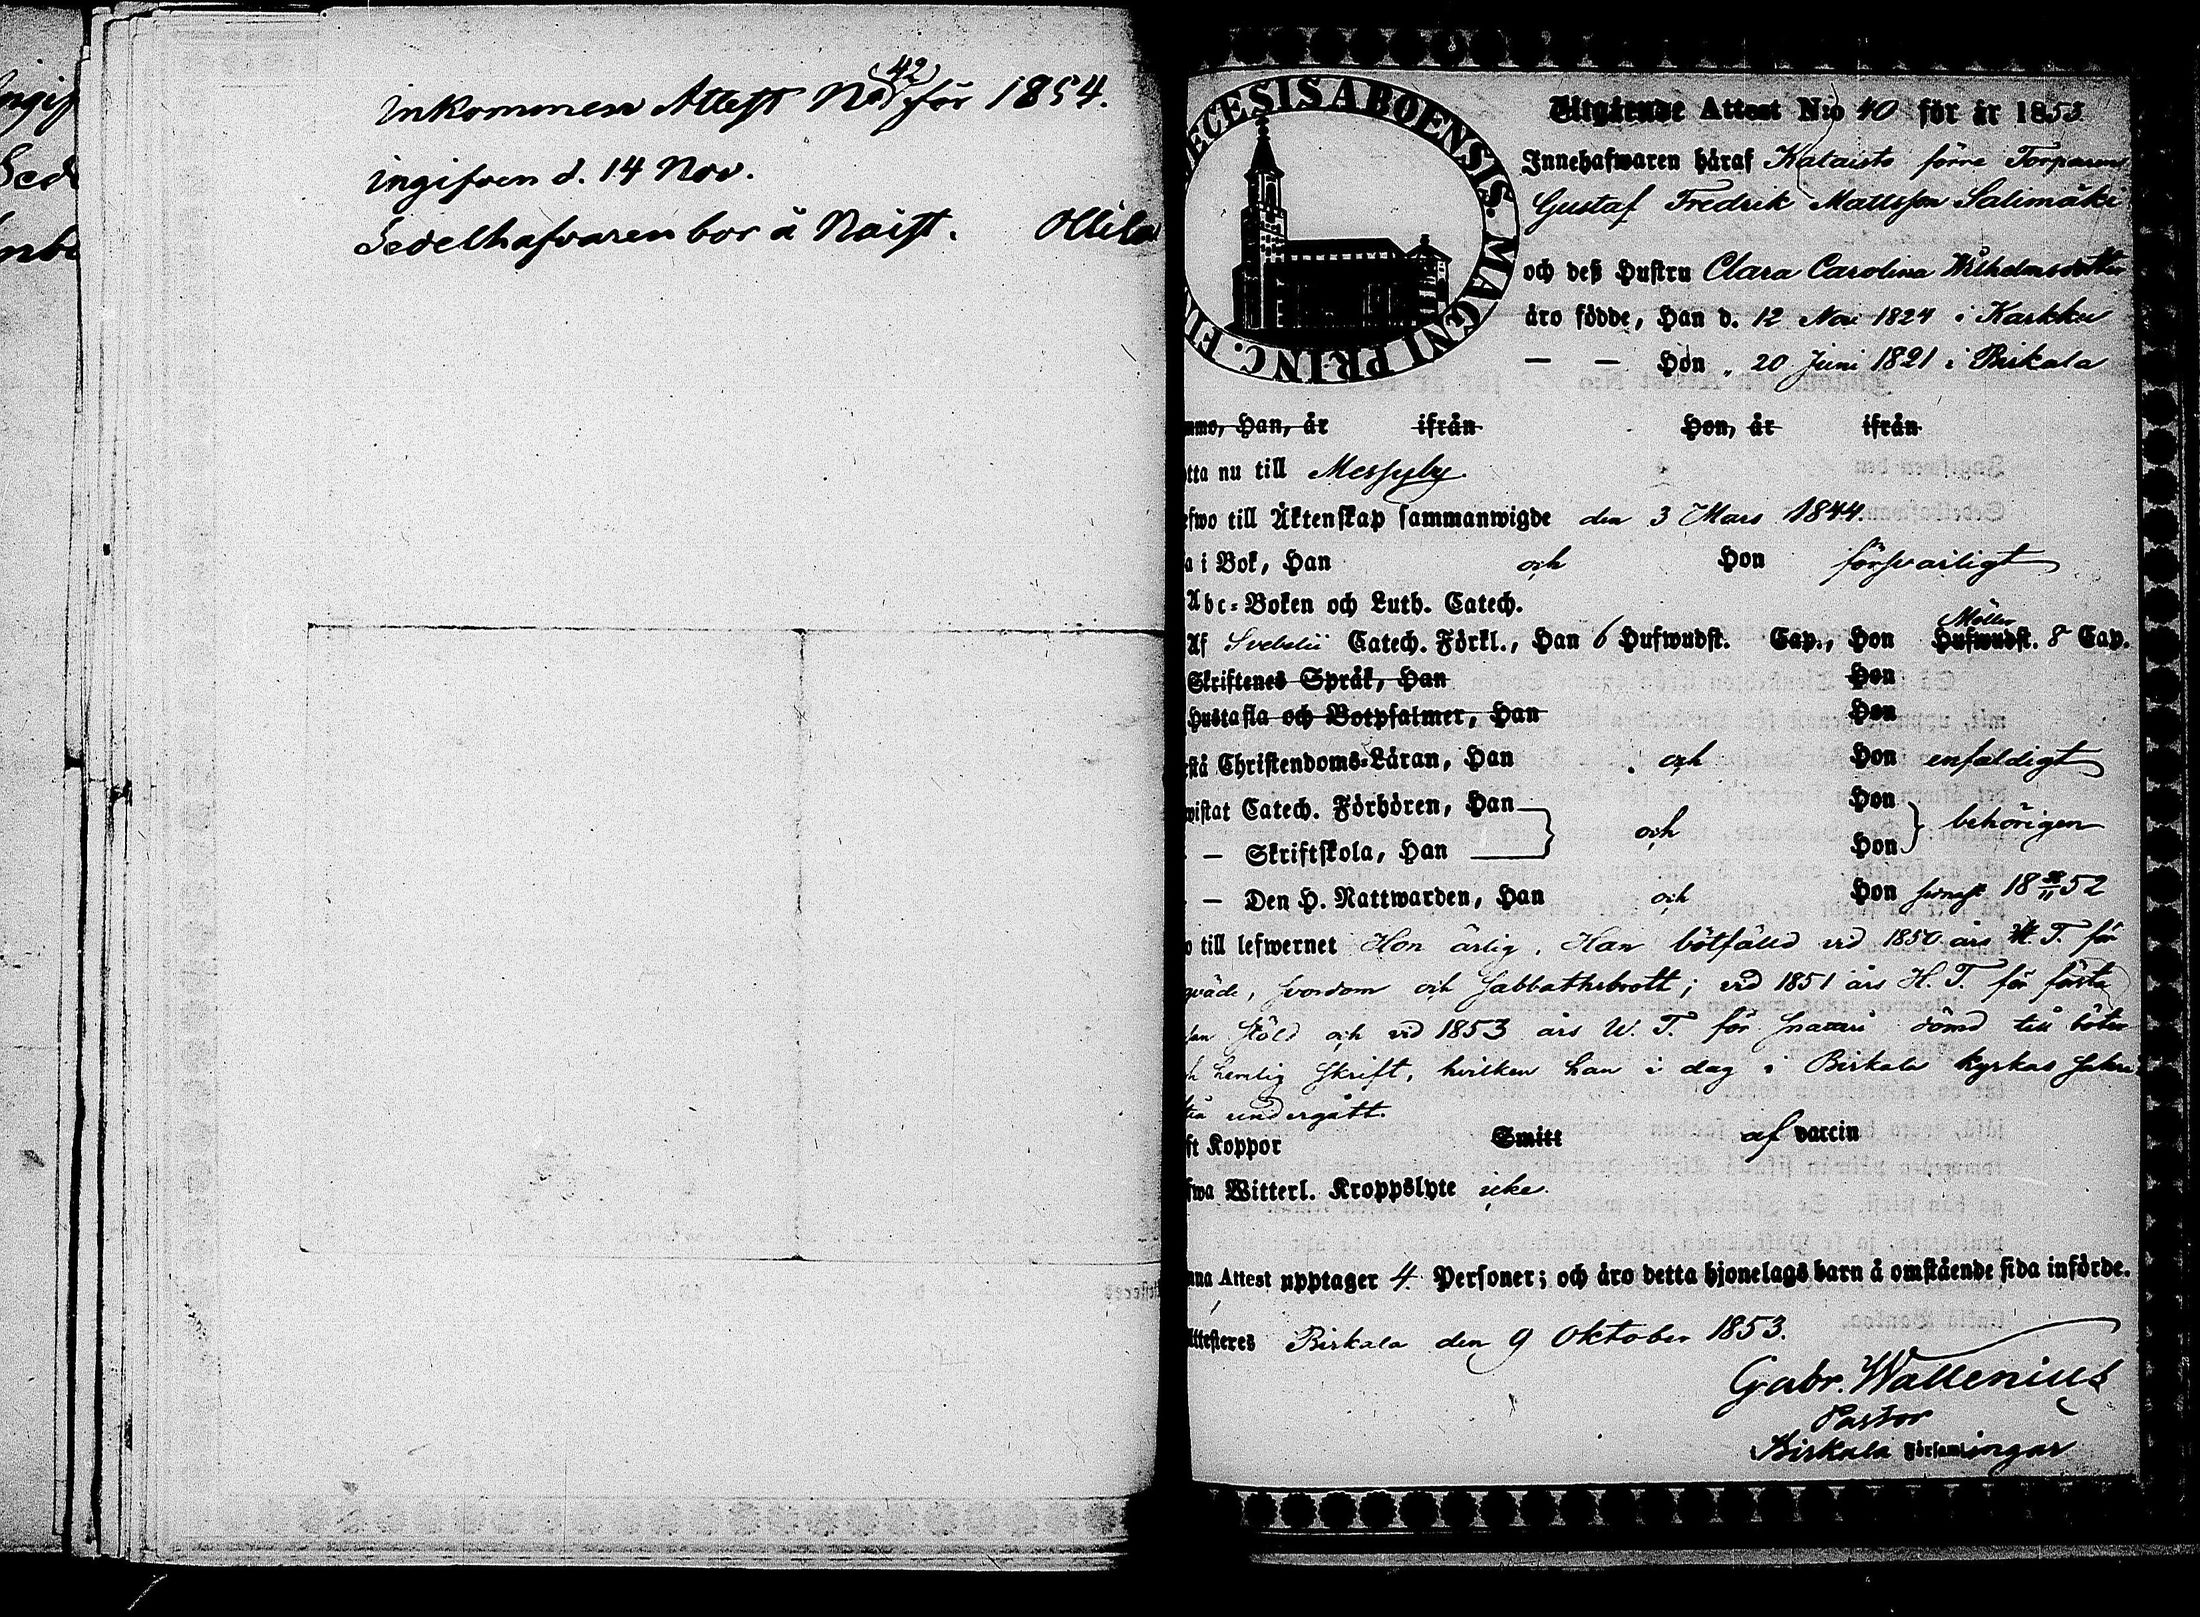 Inkommen Attest No 42 för 1854.
ingifven d. 14 Nov.
Sedelhafvaren bor å Naist.
DIECESIS ABOENSIS. MAGNI PRINC. FIN
Utgående Attest N:o 40 för år 1853
Innehafwaren häraf Kalaisto förre Torparen
Gustaf Fredrik Mattsson Salimäki
och deß Hustru Clara Carolina Wilhelmsdotter
äro födde, Han d. 12 Nov 1824 i Karkku
— — Hon „ 20 Juni 1821 i Birkala
mmo, Han, år ifrån Hon, år ifrån
tta nu till Messuby
efwo till Äktenskap sammanwigde den 3 Mars 1844.
a i Bok, Han och Hon försvarligt
Abc-Boken och Luth. Catech.
Af Svebelii Catech. Förkl., Han 6 Hufwudst. Cap., Hon Möller Hufwudst. 8 Cap.
Skriftenes Språk, Han Hon
Hustafla och Botpsalmer, Han Hon
stå Christendoms-Läran, Han och Hon enfaldigt
wistat Catech. Förhören, Han och Hon behörigen
— Skriftskola, Han Hon
— Den H. Nattwarden, Han och Hon sednast 18 11 52
o till lefwernet Hon ärlig, Han bötfälld vid 1850 års H. T. för
qväde, svordom och sabbathsbrott; vid 1851 års H. T. för första
stöld och vid 1853 års W. T. för snatteri dömd till böter
h hemlig skrift, hvilken han i dag i Birkala kyrkas sakri
stia undergått.
ft Koppor Smitt af vaccin
fwa Witterl. Kroppslyte icke.
nna Attest upptager 4 Personer; och äro detta hjonelags barn å omstående sida införde.
Attesteres Birkala den 9 Oktober 1853.
Gabr. Wallenius
Pastor
Birkala Församlingar